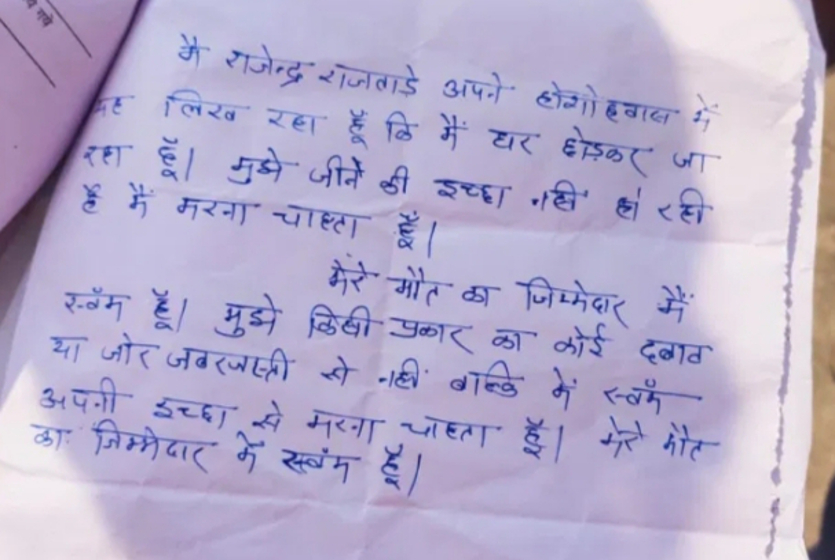 मै राजेन्द्र राजताडे अपने होशोहवास में
यह लिख रहा हूँ कि मैं घर छोड़कर जा
रहा हूँ। मुझे जीने की इच्छा नहीं हो रही
है मैं मरना चाहता हूँ।
मेरे मौत का जिम्मेदार मैं
स्वॅम हूँ। मुझे किसी प्रकार का कोई दबाव
या जोर जबरजस्ती से नहीं बल्कि में स्वॅम
अपनी इच्छा से मरना चाहता हूँ। मेरे मौत
का जिम्मेदार में स्वंम हूँ।